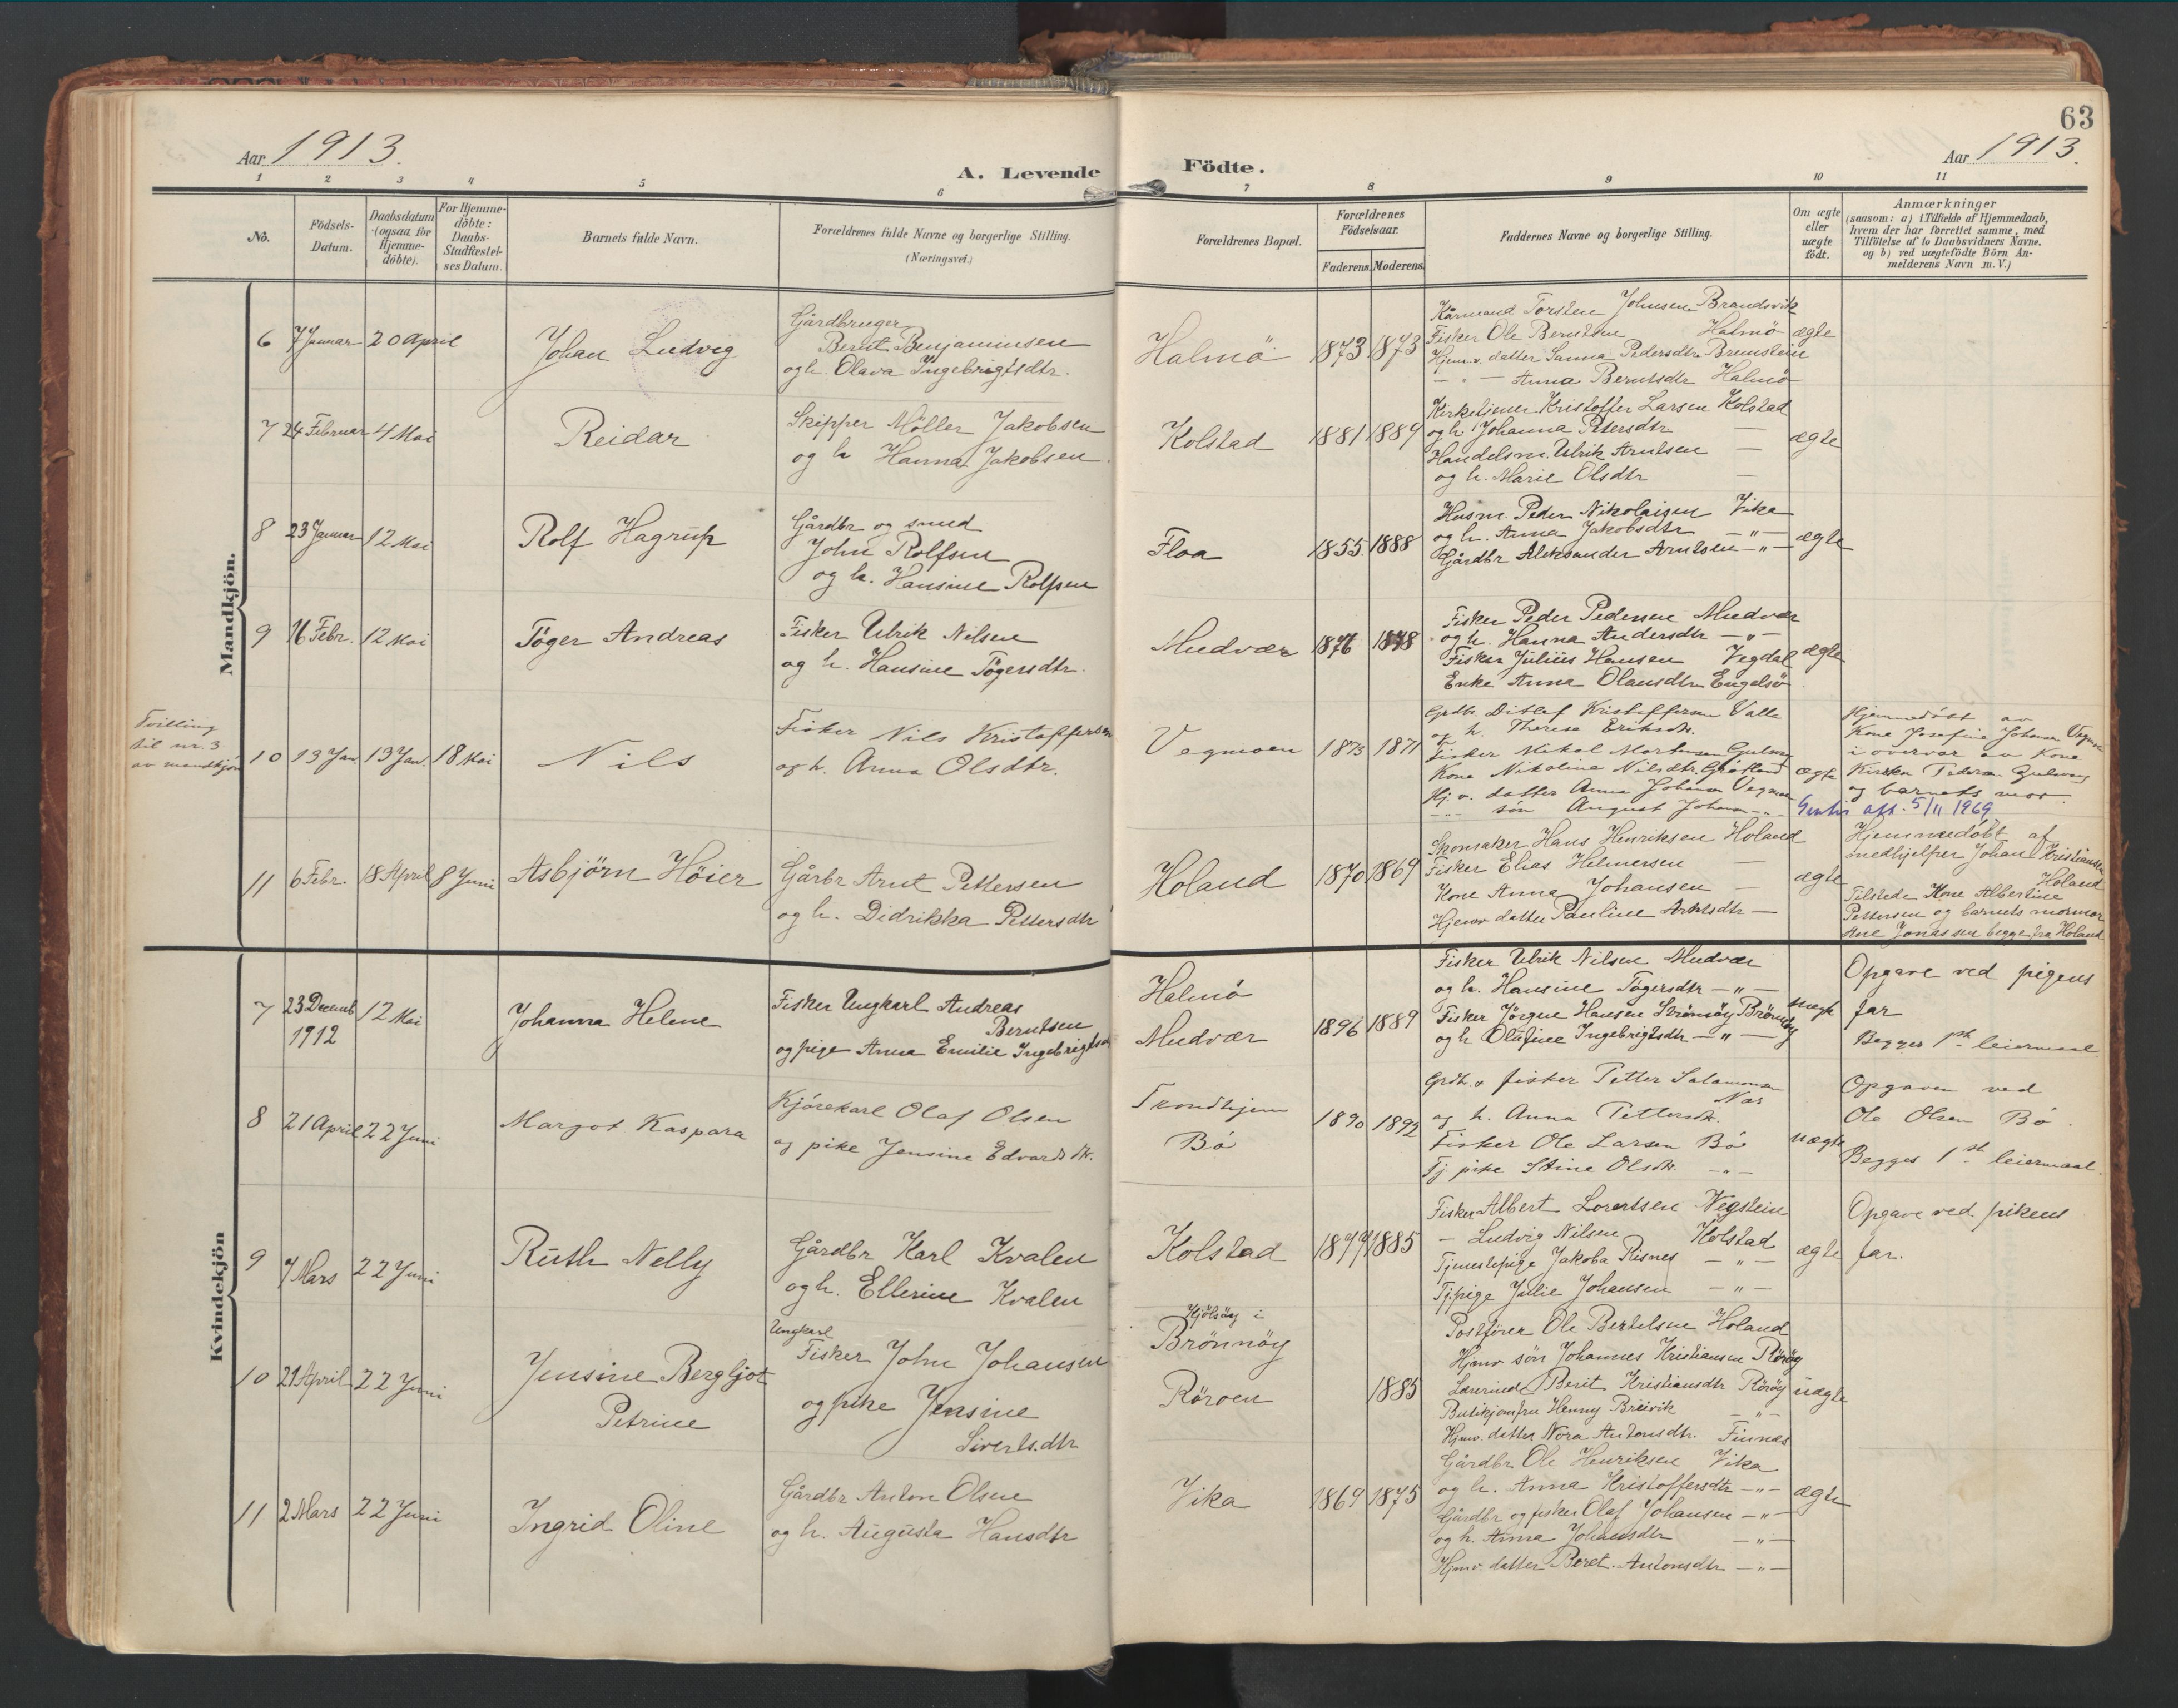 63
Aar 1913.
A. Levende Födte.
Aar 1913.
1 2 3 4 5 6 7 8 9 10 11
No.
Födsels-Datum.
Daabsdatum (ogsaa for Hjemme-döbte).
For Hjemme-döbte: Daabs-Stadfæstel-ses Datum.
Barnets fulde Navn.
Forældrenes fulde Navne og borgerlige Stilling. (Næringsvei.)
Forældrenes Bopæl.
Forældrenes Födselsaar.
Faderens. Moderens.
Faddernes Navne og borgerlige Stilling.
Om ægte eller uægte födt.
Anmærkninger
(saasom: a) i Tilfælde af Hjemmedaab,
hvem der har forrettet samme, med
Tilföielse af to Daabsvidners Navne.
og b) ved uægtefödte Börn An-
melderens Navn m. V.)
Mandkjön.
6 7 Januar 20 April
Johan Ludvig
Gårdbruger
Bernt Benjaminsen
og h. Olava Ingebrigtsdtr.
Halmö
1873 1873
Kårmand Torsten Johnsen Brandsvik
Fisker Ole Berntsen Halmö
Hjemv. datter Sanna Pedersdtr Bremstein
— " — Anna Berntsdtr Halmö
ægte
7 24 Februar 4 Mai
Reidar
Skipper Möller Jakobsen
og h Hanna Jakobsen.
Kolstad
1881 1889
Kirketjener Kristoffer Larsen Kolstad
og h. Johanna Petersdtr —
Handelsm. Ulrik Arntsen —
og h. Marie Olsdtr —
ægte
8 23 Januar 12 Mai
Rolf Hagrup
Gårdbr og smed
John Rolfsen
og h. Hansine Rolfsen
Floa
1855 1888
Husm. Peder Nikolaisen Vika
og h. Anna Jakobsdtr — " —
Gårdbr Aleksander Arntsen — " —
ægte
9 16 Febr. 12 Mai
Töger Andreas
Fisker Ulrik Nilsen
og h. Hansine Tögersdtr.
Mudvær
1876 1878
Fisker Peder Pedersen Mudvær
og h. Hanna Andersdtr — " —
Fisker Julius Hansen Vegdal
Enke Anna Olausdtr Engelsö
ægte
Tvilling
til nr. 3
av mandkjön
10 13 Jan 13 Jan. 18 Mai
Nils
Fisker Nils Kristoffersen
og h. Anna Olsdtr.
Vegmoen
1873 1871
Grdbr. Ditlef Kristoffersen Valla
og h. Therese Eriksdtr.
Fisker Mikal Mortensen Gulsvåg
Kone Nikolina Nilsdtr.
Hj. v. datter Anna Johansen Vegmoen
— " — søn August Johansen — " —
ægte
Hjemmedöbt av
Kone Josefine Johansen Vegmoen
i overvær av Kone
Kirsten Pedersen
og barnets mor.
att. 5/11 1969
11 6 Febr. 18 April 8 Juni
Asbjörn Höier
Gårbr Arnt Pettersen
og h. Didrikka Pettersdtr
Holand
1870 1869
Skomaker Hans Henriksen Holand
Fisker Elias Helmersen —
Kone Anna Johansen —
Hjemv datter Pauline Arntsdtr —
ægte
Hjemmedöbt af
medhjelper Johan Kristiansen
Holand
Tilstede Kone Albertine
Pettersen og barnets mormor
Ane Jonassen begge fra Holand
Kvindekjön
7 23 Decemb 1912 12 Mai
Johanna Helene
Fisker Ungkarl Andreas
Berntsen
og pige Anna Emilie Ingebrigtsdtr
Halmö
Mudvær
1896 1889
Fisker Ulrik Nilsen Mudvær
og h. Hansine Tögersdtr — " —
Fisker Jörgen Hansen Strömöy Brönnöy
og h Olufine Ingebrigtsdtr — " —
uægte
Opgave ved pigens
far
Begges 1ste leiermaal
8 21 April 22 Juni
Margot Kaspara
Kjörekarl Olaf Olsen
og pike Jensine Edvardsdtr.
Trondhjem
Bö
1890 1892
Grdbr. & fisker Petter Salamonsen
Nes
og h. Anna Pettersdtr.
Fisker Ole Larsen Bö
Tj. pike Stine Olsdtr. — " —
uægte
Opgaven ved
Ole Olsen Bö.
Begges 1ste leiermaal.
9 7 Mars 22 Juni
Ruth Nelly
Gårdbr Karl Kvalen
og h. Ellerine Kvalen
Kolstad
1877 1885
Fisker Albert Lorentsen Vegstein
— Ludvig Nilsen Kolstad
Tjenestepige Jakoba Risnes — " —
Tj.pige Julie Johansen — " —
ægte
Opgave ved pikens
far.
10 21 April 22 Juni
Jensine Bergljot
Petrine
Ungkarl
Fisker John Johansen
og pike Jensine
Sivertsdtr
i
Brönnöy
Röroen
1885
Postförer Ole Bertelsen Holand
Hjemv sön Johannes Kristiansen Röröy
Lærerinde Berit Kristiansdtr Röröy
Butikjomfru Henny Breivik — " —
Hjemv. datter Nora Antonsdtr. Finnes
uægte
11 2 Mars 22 Juni
Ingrid Oline
Gårdbr Anton Olsen
og h. Augusta Hansdtr
Vika
1869 1875
Gårdbr Ole Henriksen Vika
og h. Anna Kristoffersdtr — " —
Gårdbr og fisker Olaf Johansen — " —
og h. Anna Johansdtr — " —
Hjemv. datter Beret Antonsdtr — " —
ægte